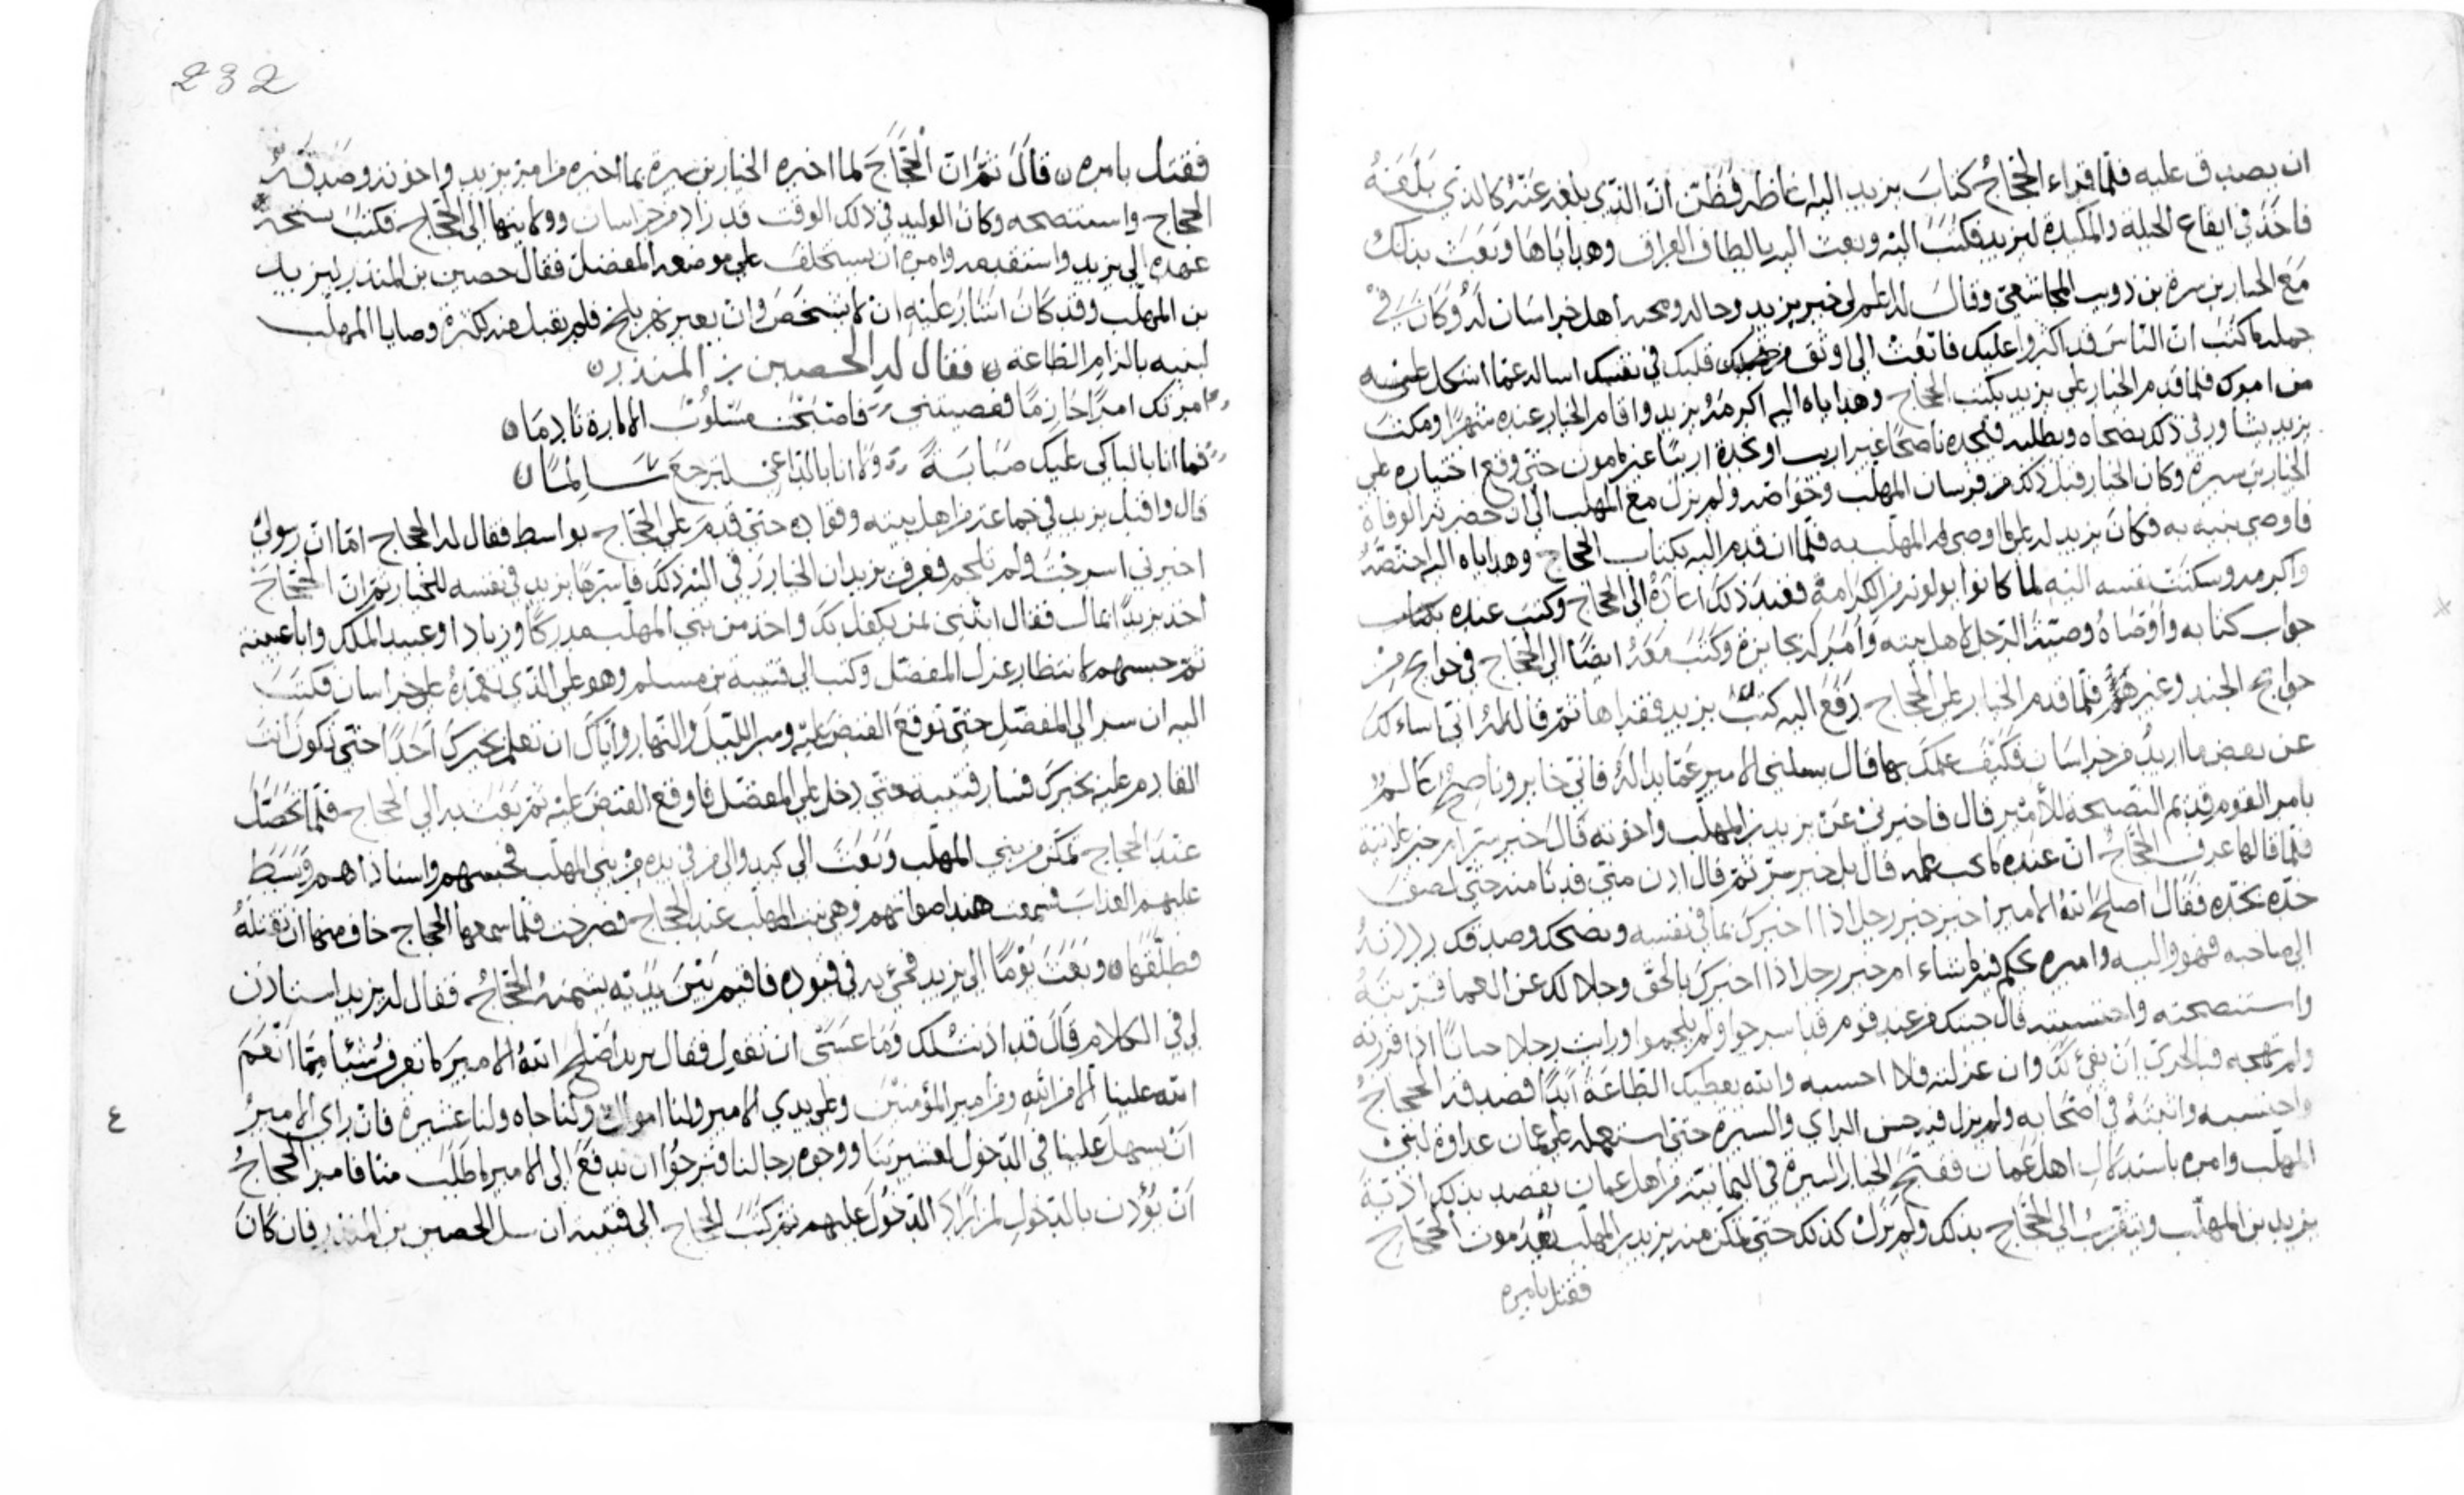 ان يصدق عليه فلما قراء الحجاج كتاب يزيد اليه غاظه فظن ان الذي بلغه عنه كالذي بلغه
فاخذ في ايقاع الحيله والمكيدة ليزيد فكتب اليه وبعث اليه بالطاف العراق وهداياها وبعث بذلك
مع الخيار بن سبرة بن ذويب المجاشعي وقال له اعلم لي خبر يزيد وحاله ومحبه اهل خراسان له وكان في
جمله ما كتب ان الناس قد اكثروا عليك فابعث الي اوثق من قبلك في نفسك اساله عما اشكل علي
من امرك فلما قدم الخيار علي يزيد بكتب الحجاج وهداياه اليه اكرمه يزيد واقام الخيار عنده شهرا ومكث
يزيد يشاور في ذلك نصحاه ويطلب فيجده ناصحا غير اريب او يجده اريبا غير مامون حتى وقع اختياره علي
الخيار بن سبرة وكان الخيار قبل ذلك من فرسان المهلب وخواصه ولم يزل مع المهلب الي ان حضرته الوفاة
فاوصى بنيه به فكان يزيد له علي ما اوصى به المهلب فلما ان قدم اليه بكتاب الحجاج وهداياه اليه اختصه
واكرمه وسكنت نفسه اليه لما كانوا يولونه من الكرامة فعند ذلك اعاده الى الحجاج وكتب عنده بكتاب
جواب كتابه واوصاه وصية الرجل لاهل بيته وامر له بجايزة وكتب معه ايضا الى الحجاج في حوايج من
حوايج الجند وغيرهم فلما قدم الخيار علي الحجاج رفع اليه كتب يزيد فقراها ثم قال له اني اساءلك
عن بعض ما اريد من خراسان فكيف علمك بها قال يسلني الامير عما بدا له فاني خابر وناصح عالم
بامر القوم قديم النصيحة للامير قال فاخبرني عن يزيد بن المهلب واخوته قال خبر سر ام خبر علانية
فلما قالها عرف الحجاج ان عنده ما يحب علمه قال بل خبر سر ثم قال ادن مني فدنا منه حتى لصق
خده بخده فقال اصلح الله الامير اخبر خبر رجل اذا اخبرك بما في نفسه ونصحك وصدقك
الي صاحبه فهو واليه واميره يحكم فيه ما يشاء ام خبر رجل اذا اخبرك بالحق وجلا لك عن العما قربته
واستنصحته واحتسبته قال جيتك من عند قوم قد اسرجوا ولم يلجموا ورايت رجلا حيانا اذا قررته
ولم تهجه فبالحري ان يفي لك وان عزلته فلا احسبه والله يعطيك الطاعة ابدا فصدقه الحجاج
واحتسبه واثبته في اصحابه ولم يزل فيه حسن الراي والسيرة حتى استعمله علي عمان عداوة لبني
المهلب وامره باستدلال اهل عمان فقبح الخيار السيرة في اليمانية من اهل عمان يقصد بذلك اذية
يزيد بن المهلب ويتقرب الي الحجاج بذلك ولم يزل كذلك حتى تمكن منه يزيد بن المهلب بعد موت الحجاج
فقتل بامره
232
فقتل بامره ن قال ثم ان الحجاج لما اخبره الخيار بن سبرة بما اخبره من امر يزيد واخوته وصدقه
الحجاج واستنصحه وكان الوليد في ذلك الوقت قد زاد من خراسان وولايتها الى الحجاج فكتب بنسخة
عهده الى يزيد واستقدمه وامره ان يستخلف علي موضعه المفضل فقال حصين بن المنذر ليزيد
بن المهلب وقد كان اشار عليه ان لا يشخص وان يعبر نهر بلخ فلم يقبل منه لكثرة وصايا المهلب
لبنيه بالزام الطاعة ن فقال له الحصين بن المنذر ن
امرتك امرا حازما فعصيتني فاصبحت مسلوب الامارة نادما ن
فما انا بالباكي عليك صبابة ولا انا بالداعي لترجع سالما ن
قال واقبل يزيد في جماعة من اهل بيته وقواده حتى قدم علي الحجاج بواسط فقال له الحجاج اما ان رسولك
اخبرني اسرجت ولم تلجم فعرف يزيد ان الخيار رقى اليه ذلك فاسرها يزيد في نفسه للخيار ثم ان الحجاج
اخذ يزيد بالمال فقال ائتني بمن يكفل بك واخذ من بني المهلب مدركا وزيادا وعبد الملك وابا عيينه
ثم حبسهم لانتظار عزل المفضل وكتب الي قتيبه بن مسلم وهو علي الذي بعمده علي خراسان فكتب
اليه ان سر الي المفضل حتى توقع القبض عليه وسر الليل والنهار واياك ان تعلم بخبرك احدا حتى تكون انت
القادم عليه بخبرك فسار قتيبه حتى دخل علي المفضل فاوقع القبض عليه ثم بعث به الي الحجاج فلما تحصل
عند الحجاج تمكن من بني المهلب وبعث الى من في يده من بني المهلب فحبسهم واستاداهم وبسط
عليهم العذاب فسمعت هند اصواتهم وهي بنت المهلب عند الحجاج فصرخت فلما سمعها الحجاج خاف منها ان تقتله
فطلقها ن وبعث يوما الى يزيد فجئ به في قيوده فاقيم بين يديه يشتمه الحجاج فقال له يزيد استاذن
لي في الكلام قال قد اذنت لك وما عسى ان تقول فقال يزيد اصلح الله الامير ما نعرف شيئا مما انعم
الله علينا الا من الله ومن امير المؤمنين وعلي يدي الامير ولنا اموال ولنا جاه ولنا عشيرة فان راى الامير
ان يسهل علينا في الدخول لعشيرتنا ووجوه رجالنا فنرجوا ان ندفع الى الامير ما طلب منا فامر الحجاج
ان يؤذن بالدخول لمن اراد الدخول عليهم ثم كتب الحجاج الى قتيبه ان سل الحصين بن المنذر فان كان
٤